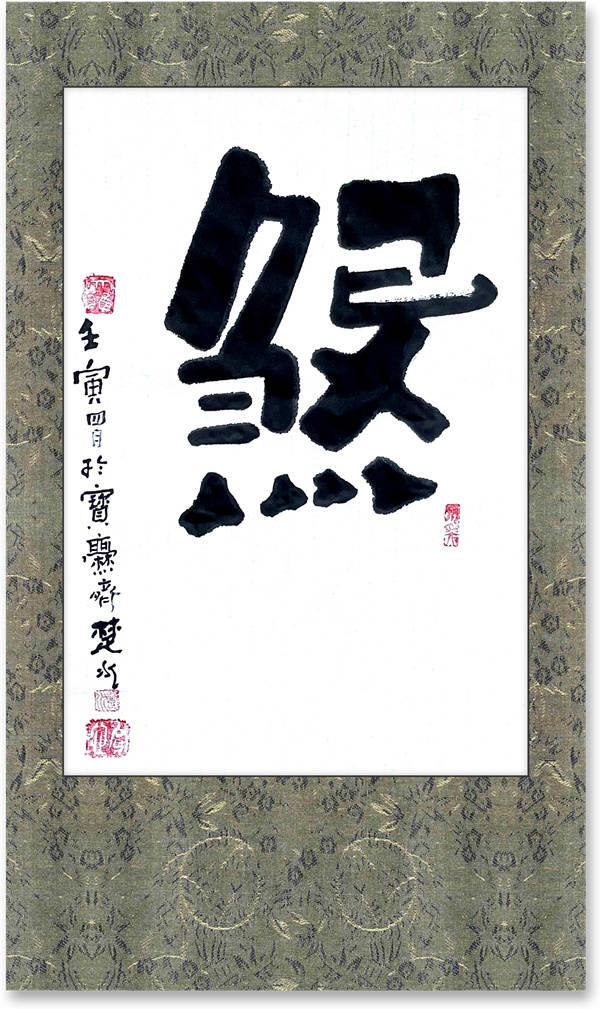 煞
壬寅四月於寶齋楚水